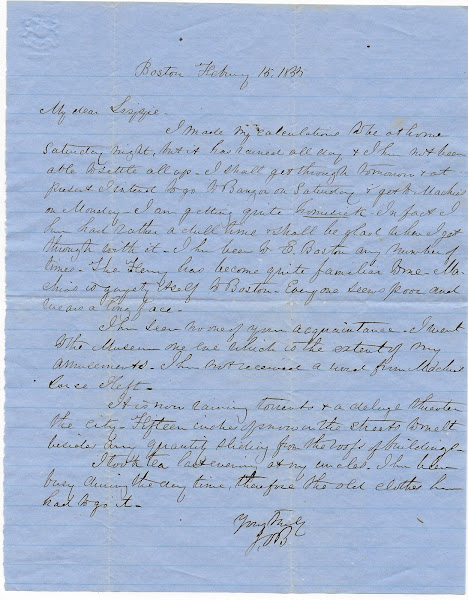 Boston Febuy 15. 18
My dear Lizzie.
I made my calculations to be at home
Saturday night, but it has rained all day & I hav not been
able to settle all up. I shall get through tomorrow & at
present I intend to go to Bangor on Saturday & get to Machias
on Monday. I am getting quite homesick. In fact I
hav had rather a dull time & shall be glad when I get
through with it. I hav been to E. Boston any number of
times. The Ferry has become quite familiar to me. Ma
chias is gayety itself to Boston. Everyone seems poor and
wears a long face.
I hav seen no one of your acquaintance. I went
to the Museum one eve which is the extent of my
amusements. I hav not received a word from Machias
since I left.
It is now raining torrents & a deluge threatens
the city. Fifteen inches of snow on the streets to melt
besides any quantity sliding from the roofs of buildings.
I took tea last evening at my uncles. I hav been
busy during the day time, therefore the old clothes hav
had to go it.
Yours Truly
J.